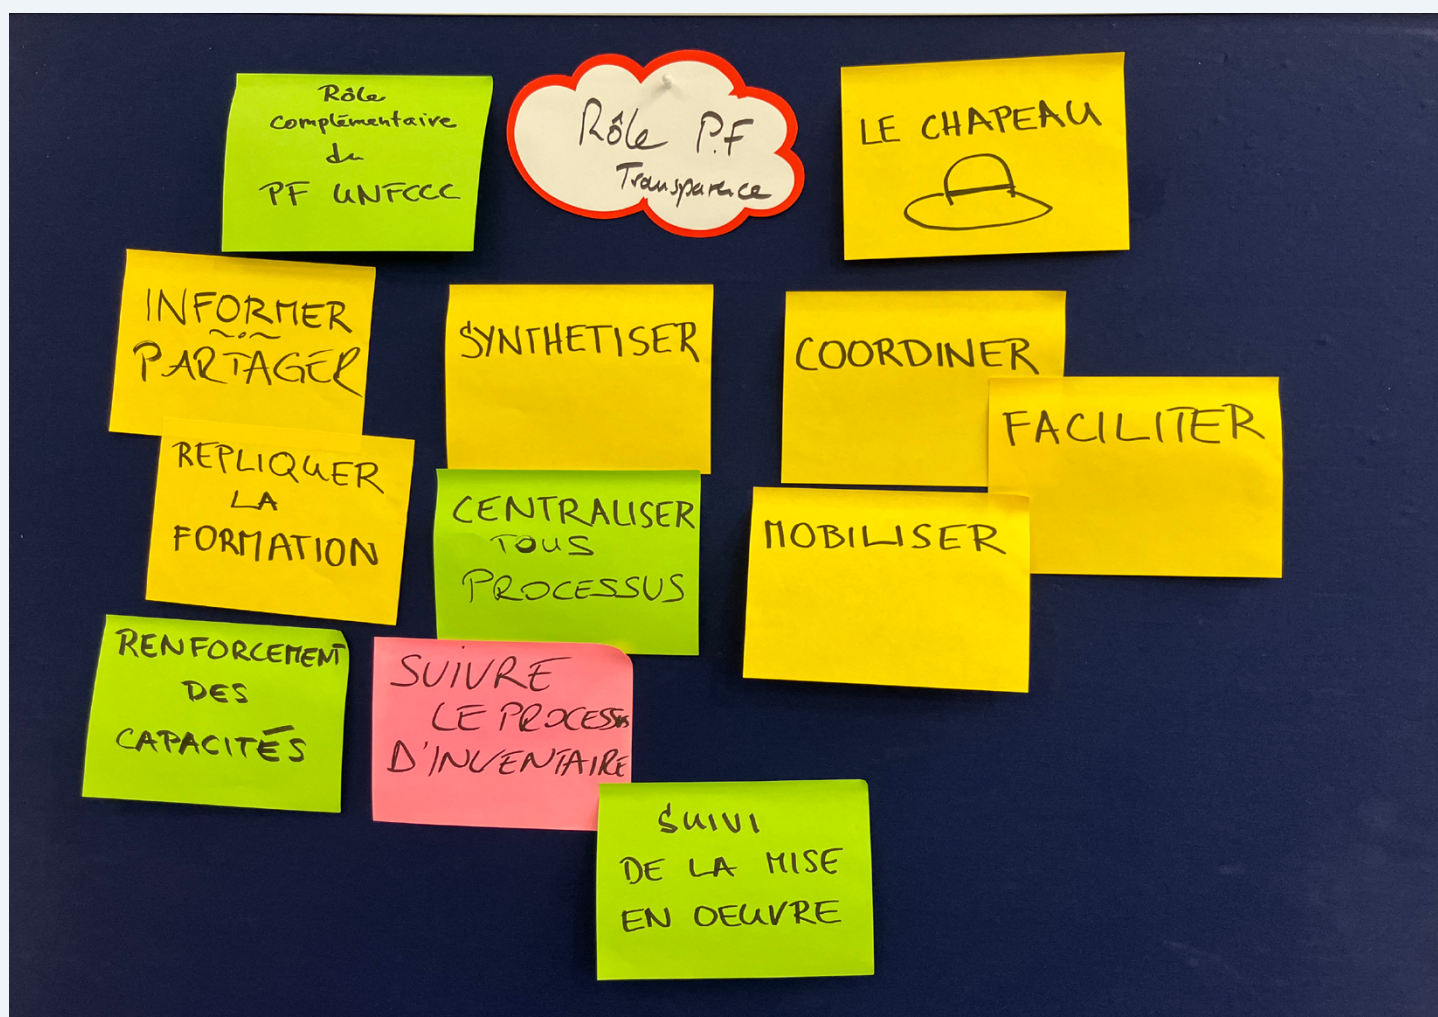 Rôle
complémentaire
du
PF UNFCCC
Rôle P.F
Transparence
LE CHAPEAU
INFORMER
PARTAGER
SYNTHETISER
COORDINER
FACILITER
REPLIQUER
LA
FORMATION
CENTRALISER
TOUS
PROCESSUS
MOBILISER
RENFORCEMENT
DES
CAPACITÉS
SUIVRE
LE PROCESSUS
D'INVENTAIRE
SUIVI
DE LA MISE
EN OEUVRE